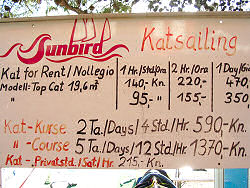 Sunbird Katsailing
Kat for Rent/Nollegio 1Hr./Std/Ora 2Hr./Ora 1Day/
Modell: Top Cat 19,6m² 140,-Kn. 220,- 470
" 95,-" 155,- 350
Kat-Kurse 2Ta./Days/4Std/Hr. 590-Kn.
" -Course 5Ta./Days/12Std/Hr. 1370-Kn.
Kat-Privatstd./Sat/Hr. 215,-Kn.